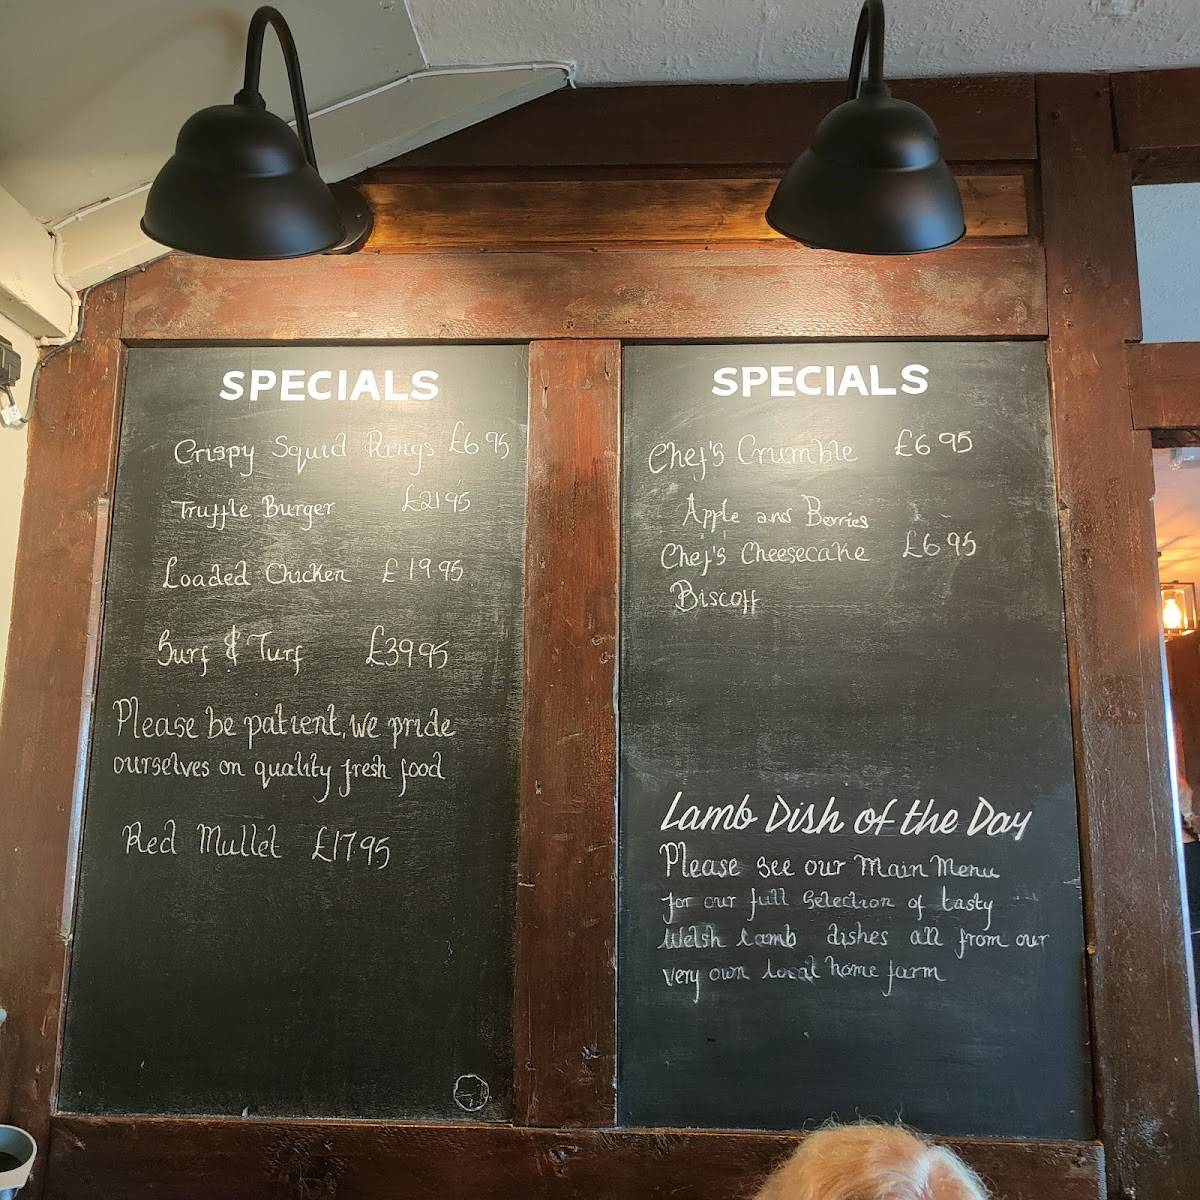 SPECIALS
Crispy Squid Rings £6 95
Truffle Burger £21 95
Loaded Chicken £19 95
Surf & Turf £39 95
Please be patient, we pride
ourselves on quality fresh food
Red Mullet £17 95
SPECIALS
Chef's Crumble £6 95
Apple and Berries
Chef's Cheesecake £6 95
Biscoff
Lamb Dish of the Day
Please see our Main Menu
for our full selection of tasty
Welsh Lamb dishes all from our
very own local home farm